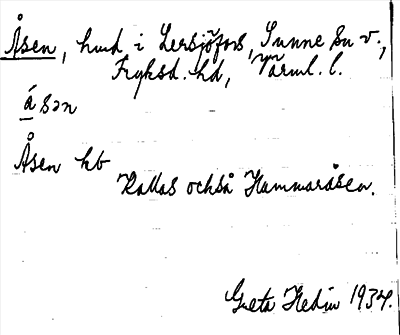 Åsen, hmd i Lersjöfors, Sunne sn v.,
Fryksd. hd, Värml. l.
å̀sən
Åsen hb
Kallas också Hammaråsen.
Greta Hedin 1934.